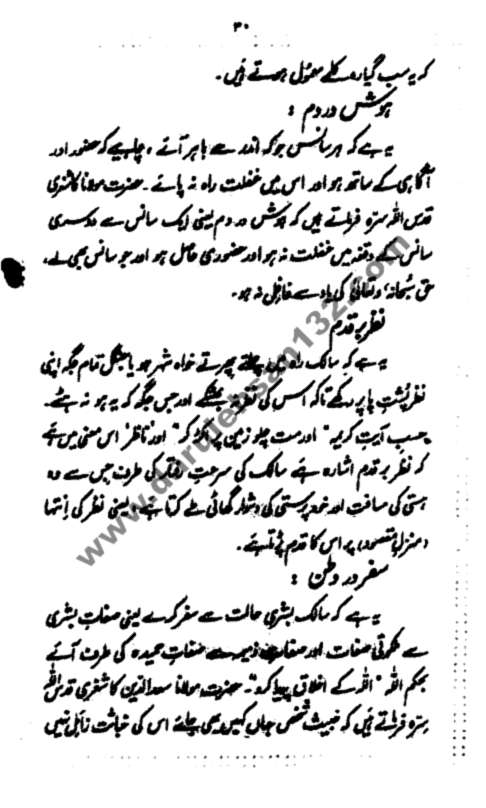 ۳۰
کہ یہ سب گیارہ کلمے معمول ہوتے ہیں۔
ہوش در دم :
یہ ہے کہ ہر سانس جو کہ اندر سے باہر آئے، چاہیے کہ حضور اور
آگاہی کے ساتھ ہو اور اس میں غفلت راہ نہ پائے۔ حضرت مولانا کاشغری
قدس اللہ سرہ فرماتے ہیں کہ ہوش در دم یعنی ایک سانس سے دوسری
سانس کے وقفہ میں غفلت نہ ہو اور حضوری حاصل ہو اور جو سانس بھی لے،
حق سبحانہ، وتعالیٰ کی یاد سے غافل نہ ہو۔
نظر بر قدم
یہ ہے کہ سالک راہ میں چلتے پھرتے خواہ شہر ہو یا جنگل تمام جگہ اپنی
نظر پشتِ پا پر رکھے تاکہ اس کی نظر نہ بھٹکے اور جس جگہ کہ یہ ہو نہ ہٹے۔
حسبِ آیتِ کریمہ "اور مت چلو زمین پر اکڑ کر" اور ناظر اس معنی میں ہے
کہ نظر بر قدم اشارہ ہے سالک کی سرعتِ رفتار کی طرف جس سے وہ
ہستی کی مسافت اور خود پرستی کی دشوار گھاٹی طے کرتا ہے، یعنی نظر کی انتہا
(منزلِ مقصود) پر اس کا قدم پڑتا ہے۔
سفر در وطن :
یہ ہے کہ سالک بشری حالت سے سفر کرے یعنی صفاتِ بشری
سے ملکوتی صفات اور صفاتِ ذمیمہ سے صفاتِ حمیدہ کی طرف آئے
بحکم اللہ "اللہ کے اخلاق پیدا کرو"۔ حضرت مولانا سعدالدین کاشغری قدس اللہ
سرہ فرماتے ہیں کہ خبیث شخص جہاں کہیں بھی جائے اس کی خباثت زائل نہیں
www.darulehsan132.com